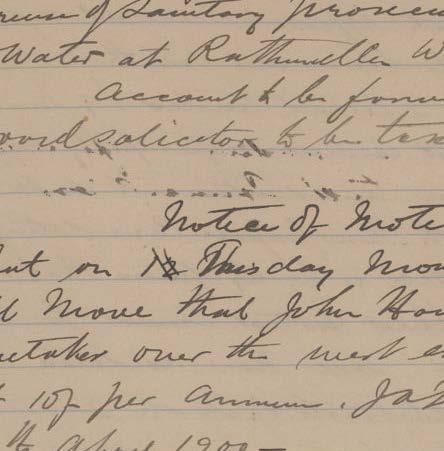 of Sanitary prosecu
Water at Rathmullen W
Account to be forw
solicitor to be tax
Notice of Moti
on This day Mon
Move that John Hou
over the west e
10/- per Annum. Ja
th April 1900 -